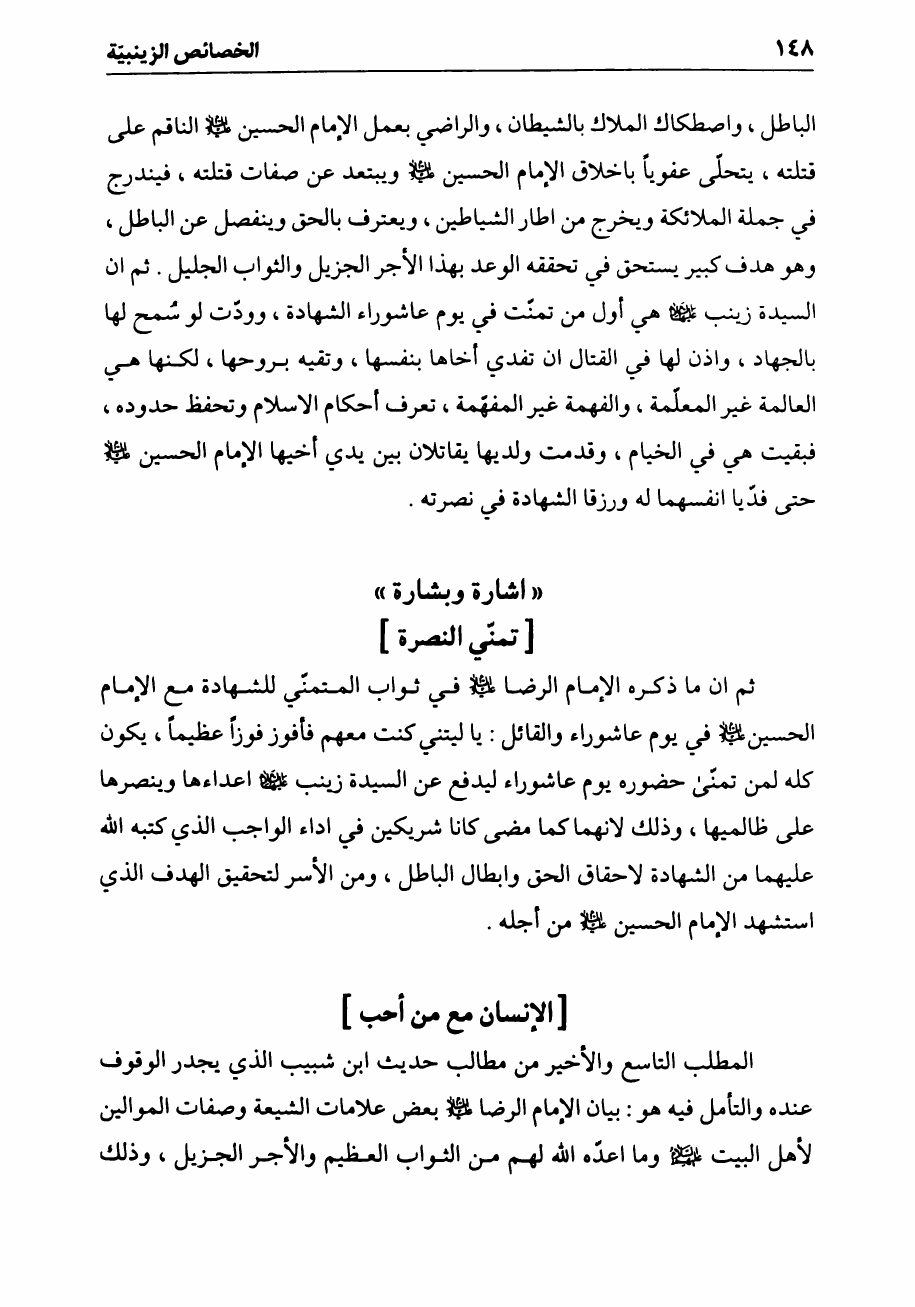 ١٤٨ الخصائص الزينبيّة
الباطل ، واصطكاك الملاك بالشيطان ، والراضي بعمل الإمام الحسين عليه السلام الناقم على
قتلته ، يتحلّى عفوياً باخلاق الإمام الحسين عليه السلام ويبتعد عن صفات قتلته ، فيندرج
في جملة الملائكة ويخرج من اطار الشياطين ، ويعترف بالحق وينفصل عن الباطل ،
وهو هدف كبير يستحق في تحققه الوعد بهذا الأجر الجزيل والثواب الجليل . ثم ان
السيدة زينب عليها السلام هي أول من تمنّت في يوم عاشوراء الشهادة ، وودّت لو سُمح لها
بالجهاد ، واذن لها في القتال ان تفدي أخاها بنفسها ، وتقيه بروحها ، لكنها هي
العالمة غير المعلّمة ، والفهمة غير المفهّمة ، تعرف أحكام الاسلام وتحفظ حدوده ،
فبقيت هي في الخيام ، وقدمت ولديها يقاتلان بين يدي أخيها الإمام الحسين عليه السلام
حتى فدّيا انفسهما له ورزقا الشهادة في نصرته .
« اشارة وبشارة »
[ تمنّي النصرة ]
ثم ان ما ذكره الإمام الرضا عليه السلام في ثواب المتمنّي للشهادة مع الإمام
الحسين عليه السلام في يوم عاشوراء والقائل : يا ليتني كنت معهم فأفوز فوزاً عظيماً ، يكون
كله لمن تمنّىٰ حضوره يوم عاشوراء ليدفع عن السيدة زينب عليها السلام اعداءها وينصرها
على ظالميها ، وذلك لانهما كما مضى كانا شريكين في اداء الواجب الذي كتبه الله
عليهما من الشهادة لاحقاق الحق وابطال الباطل ، ومن الأسر لتحقيق الهدف الذي
استشهد الإمام الحسين عليه السلام من أجله .
[ الإنسان مع من أحب ]
المطلب التاسع والأخير من مطالب حديث ابن شبيب الذي يجدر الوقوف
عنده والتأمل فيه هو : بيان الإمام الرضا عليه السلام بعض علامات الشيعة وصفات الموالين
لأهل البيت عليهم السلام وما اعدّه الله لهم من الثواب العظيم والأجر الجزيل ، وذلك